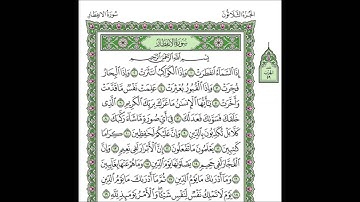 سورة الانفطار
الجزء الثلاثون
سورة الانفطار
بسم الله الرحمن الرحيم
إذا السماء انفطرت ١ وإذا الكواكب انتثرت ٢ وإذا البحار
فجرت ٣ وإذا القبور بعثرت ٤ علمت نفس ما قدمت
وأخرت ٥ يا أيها الإنسان ما غرك بربك الكريم ٦ الذي
خلقك فسواك فعدلك ٧ في أي صورة ما شاء ركبك ٨
كلا بل تكذبون بالدين ٩ وإن عليكم لحافظين ١٠ كراما
كاتبين ١١ يعلمون ما تفعلون ١٢ إن الأبرار لفي نعيم ١٣ وإن
الفجار لفي جحيم ١٤ يصلونها يوم الدين ١٥ وما هم عنها بغائبين
١٦ وما أدراك ما يوم الدين ١٧ ثم ما أدراك ما يوم الدين
١٨ يوم لا تملك نفس لنفس شيئا والأمر يومئذ لله ١٩